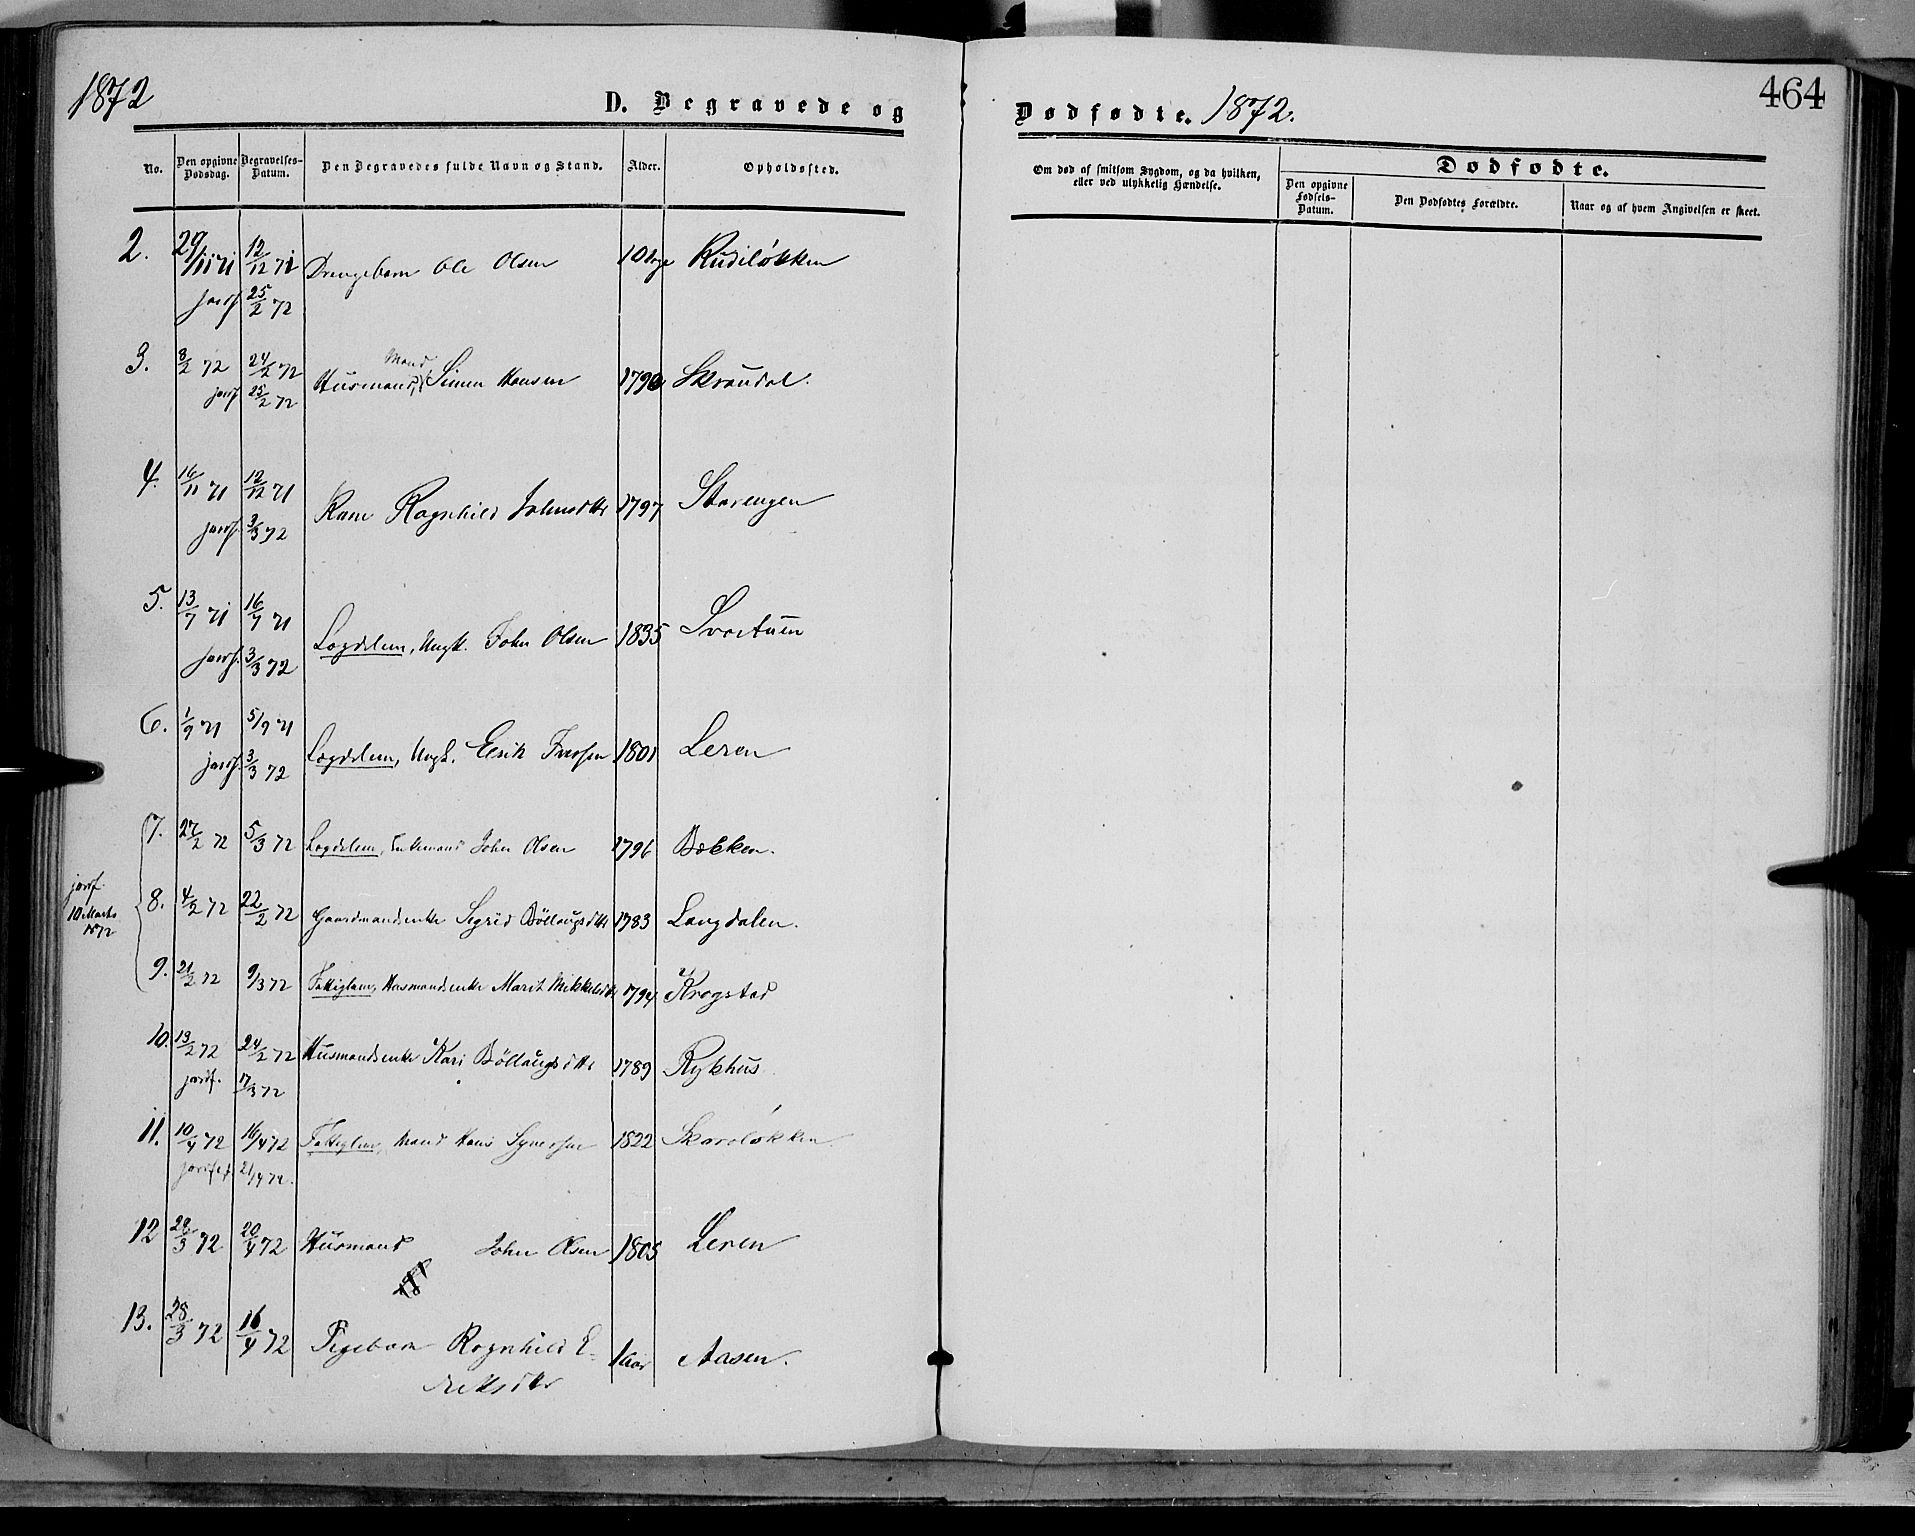 1872
D. Begravede og
Dødfødte. 1872.
464
No.
Den opgivne Dødsdag.
Begravelses-Datum.
Den Begravedes fulde Navn og Stand.
Alder.
Opholdssted.
Om død af smitsom Sygdom, og da hvilken,
eller ved ulykkelig Hændelse.
Dødfødte.
Den opgivne Fødsels-Datum.
Den Dødfødtes Forældre.
Naar og af hvem Angivelsen er skeet.
2. 29/11 71 12/12 71 Drengebarn Ole Olsen 10 Rudiløkken
jordf. 25/2 72
3. 8/2 72 24/2 72 Husmand, Mand Simen Hansen 1790 Skrondal.
jordf. 25/2 72
4. 16/11 71 12/12 71 Kone Ragnhild Johnsdtr 1797 Storengen
jordf. 3/3 72
5. 13/7 71 16/7 71 Lægdslem, Ungk. John Olsen 1835 Svartuen
jordf. 3/3 72
6. 1/9 71 5/9 71 Lægdslem, Ungk. Erik Iversen 1801 Leren
jordf. 3/3 72
7. 27/2 72 5/3 72 Lægdslem, Enkemand John Olsen 1796 Bækken.
jordf. 10 Marts 1872
8. 4/2 72 22/2 72 Gaardmandsenke Sigrid Bøllaugsdtr 1783 Langdalen.
9. 21/2 72 9/3 72 Fattiglem, Husmandsenke Marit Mikkelsdtr 1794 Krogstad
10. 13/2 72 24/2 72 Husmandsenke Kari Bøllaugsdtr 1789 Rykhus
jordf. 17/3 72
11. 10/4 72 16/4 72 Fattiglem, Mand Hans Syversen 1822 Skardløkken
jordf. 21/4 72.
12 29/3 72 20/4 72 Husmand John Olsen 1805 Leren
13. 28/3 72 16/4 72 Pigebarn Ragnhild E-
riksdtr 1 Aar Aasen.